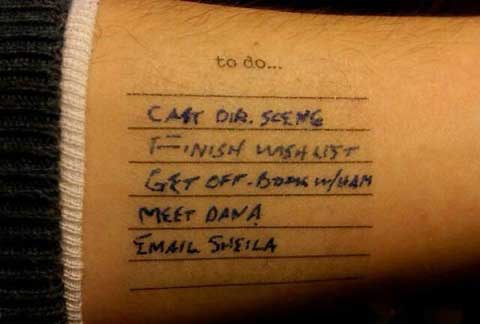 to do...
CAST DIR. SCENE
FINISH WISHLIST
GET OFF-BOOK W/HAM
MEET DANA
EMAIL SHEILA